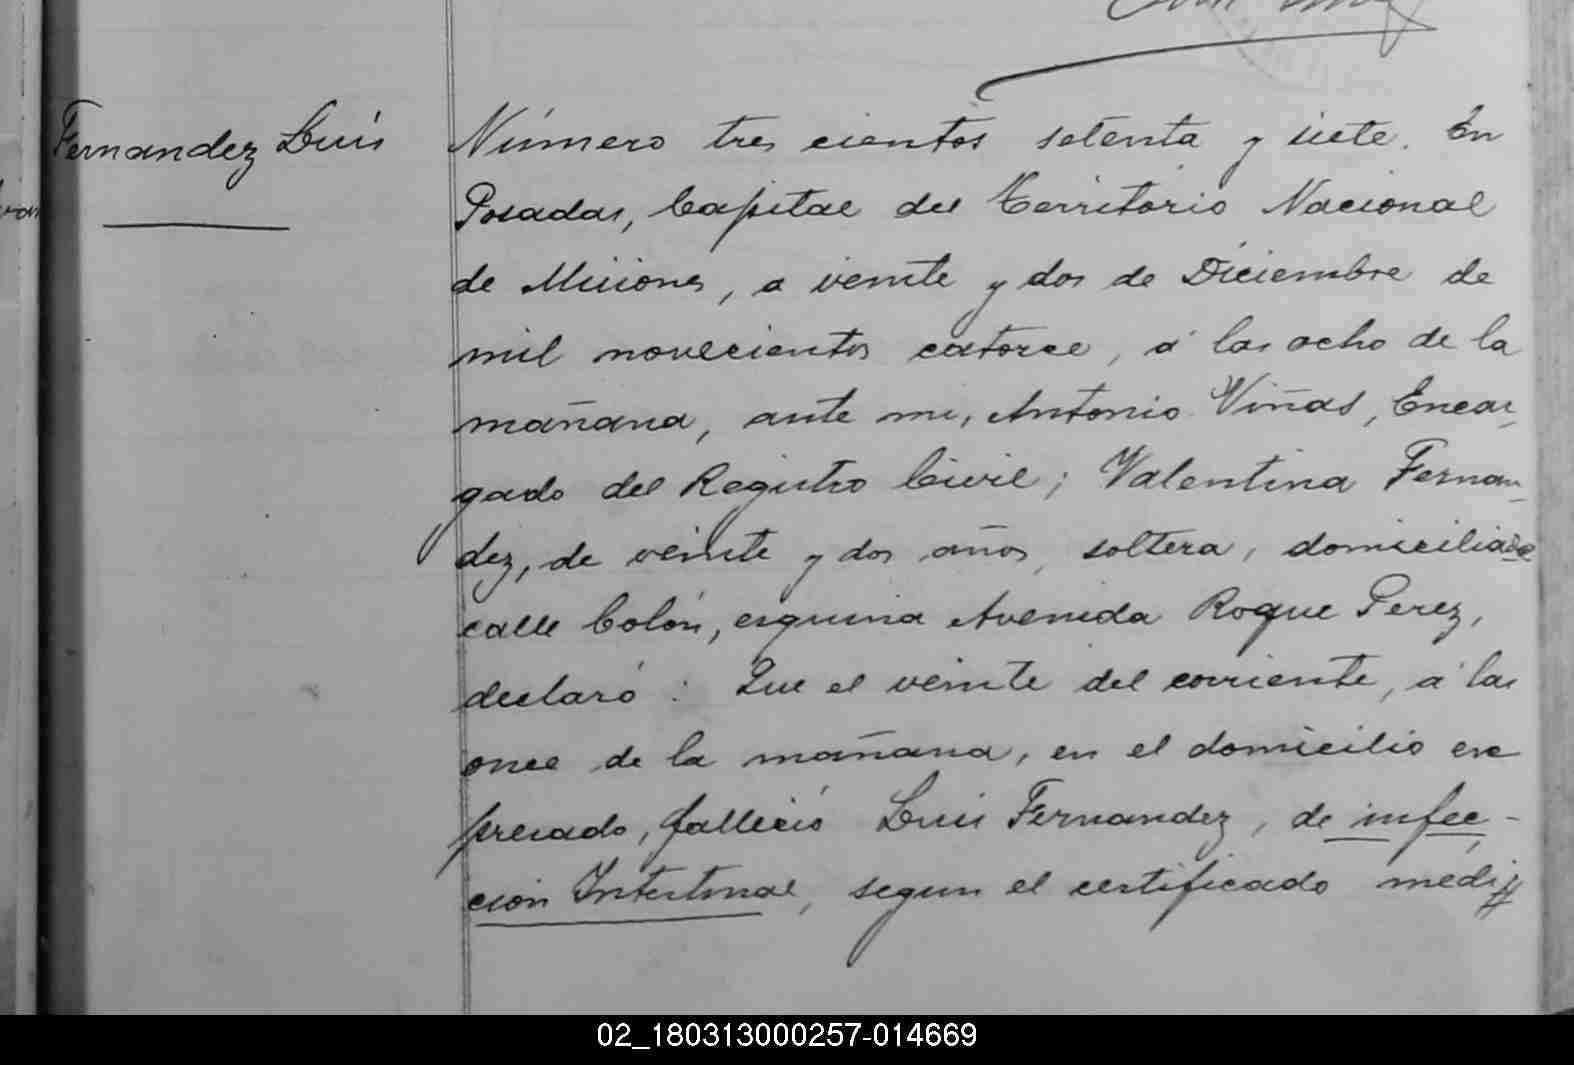 Fernandez Luis
Número tres cientos setenta y siete. En
Posadas, Capital del Territorio Nacional
de Misiones, a veinte y dos de Diciembre de
mil novecientos catorce, á las ocho de la
mañana, ante mi, Antonio Viñas, Encar
gado del Registro Civil; Valentina Fernan_
dez, de veinte y dos años, soltera, domiciliada
calle Colón, esquina Avenida Roque Perez,
declaró: Que el veinte del corriente, á las
once de la mañana, en el domicilio ex
presado, falleció Luis Fernandez, de infec-
ción Intestinal, segun el certificado médi
02_180313000257-014669